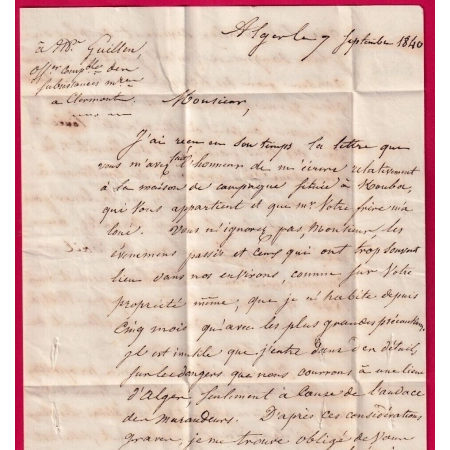 Alger le 7 Septembre 1840
à Mr. Guillen,
offer. Compble. des
subsistances mres
à Clermont
Monsieur,
J'ai reçu en son temps la lettre que
vous m'avez fait l'honneur de m'écrire relativement
à la maison de campagne située à Kouba,
qui vous appartient et que mr. Votre frère m'a
loué. Vous n'ignorez pas, Monsieur, les
évènemens passés et ceux qui ont trop souvent
lieu dans nos environs, comme sur Votre
propriété même, que je n'habite depuis
Cinq mois qu'avec les plus grandes précautions,
il est inutile que j'entre dans des détails
sur les dangers que nous courrons à une lieue
d'Alger, seulement à Cause de l'audace
des Maraudeurs. D'après ces considérations
graves, je me trouve obligé de vous